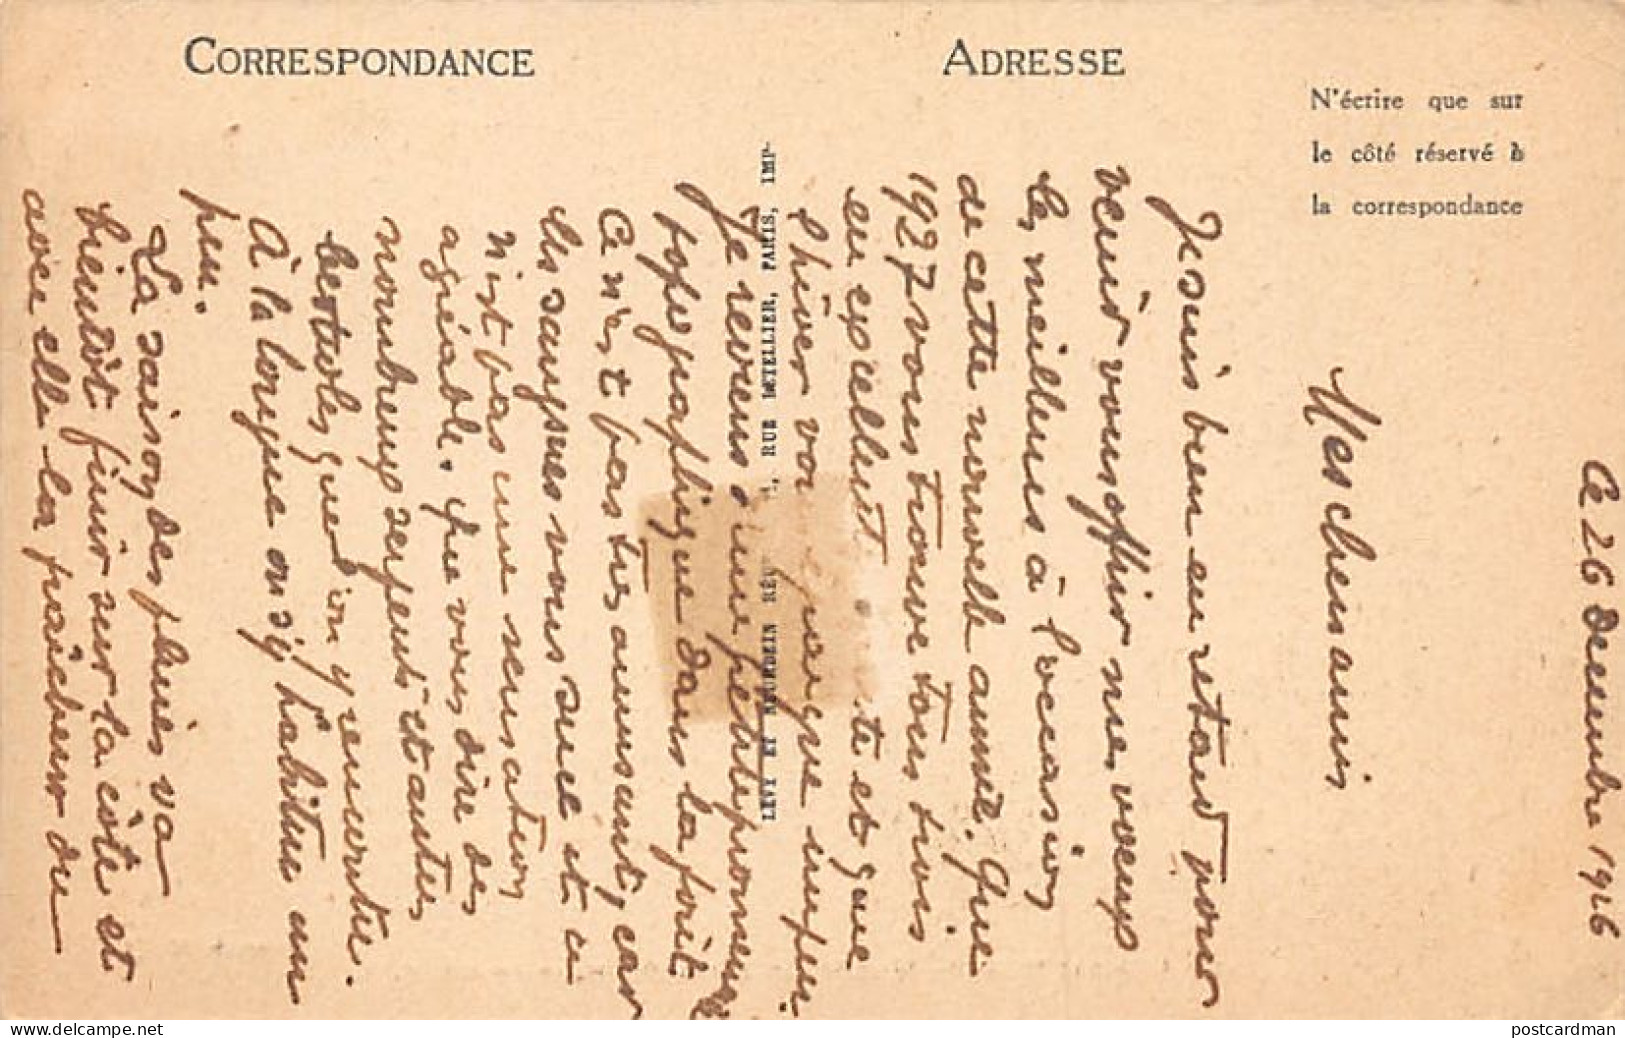 CORRESPONDANCE
ADRESSE
N'écrire que sur
le côté réservé à
la correspondance
LÉVY ET NEURDEIN RÉU RUE LETELLIER, PARIS, IMP-
Ce 26 Decembre 1926
Mes chers amis
Je suis bien en retard pour
venir vous offrir mes voeux
les meilleurs à l'occasion
de cette nouvelle année. Que
1927 vous trouve tous trois
en excellente et que
l'hiver
Je reviens d'une petite promenade
topographique dans la forêt
Ce n'est pas très amusant, car
les sangsues vous suce et ce
n'est pas une sensation
agréable. Que vous dire des
nombreux serpents et autres
bestioles que l'on y rencontre.
À la longue on s'y habitue un
peu.
La saison des pluies va
bientôt finir sur la côte et
avec elle la fraîcheur du
postcardman
Ihr Webseite-Name.com